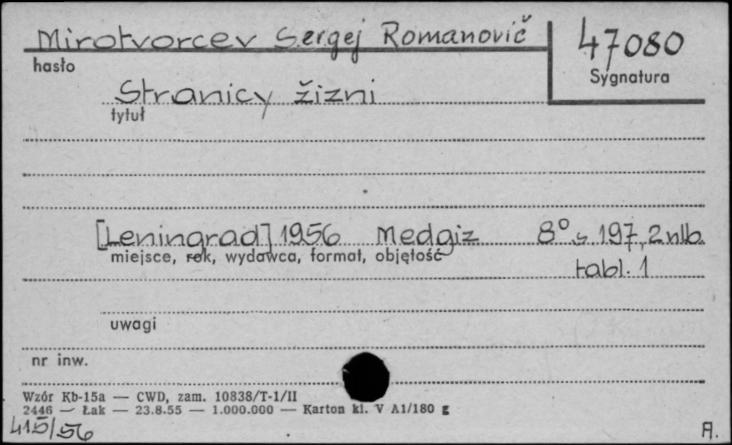 Mirotvorcev Sergej Romanovič 47080
hasło
Sygnatura
Stranicy žizni
tytuł
[Leningrad] 1956 Medgiz 8° s. 197, 2 nlb.
miejsce, rok, wydawca, format, objętość
tabl. 1
uwagi
nr inw.
Wzór Kb-15a — CWD, zam. 10838/T-1/II
2446 — Łak — 23.8.55 — 1.000.000 — Karton kl. V A1/180 g
415/56
A.